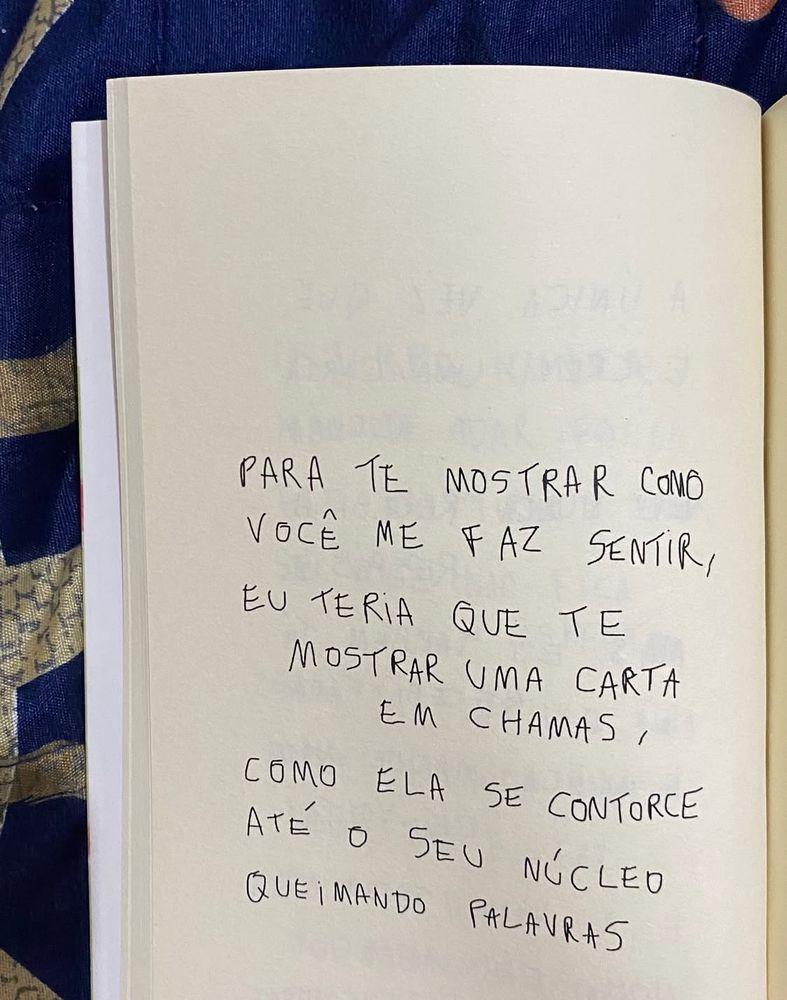 PARA TE MOSTRAR COMO
VOCÊ ME FAZ SENTIR,
EU TERIA QUE TE
MOSTRAR UMA CARTA
EM CHAMAS,
COMO ELA SE CONTORCE
ATÉ O SEU NÚCLEO
QUEIMANDO PALAVRAS